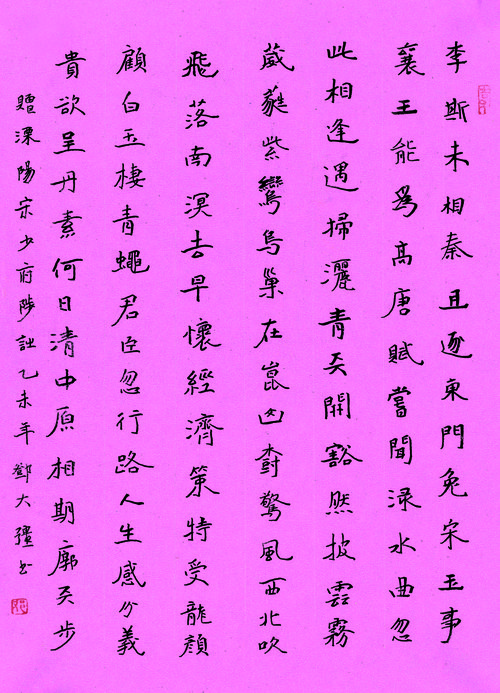 李斯未相秦且逐東門免宋玉事
襄王能為高唐賦嘗聞淥水曲忽
此相逢遇掃灑青天開豁然披雲霧
葳蕤紫鸞鳥巢在崑山樹驚風西北吹
飛落南溟去早懷經濟策特受龍顏
顧白玉棲青蠅君臣忽行路人生感分義
貴欲呈丹素何日清中原相期廓天步
贈溧陽宋少府陟詩乙未年鄧大彊書